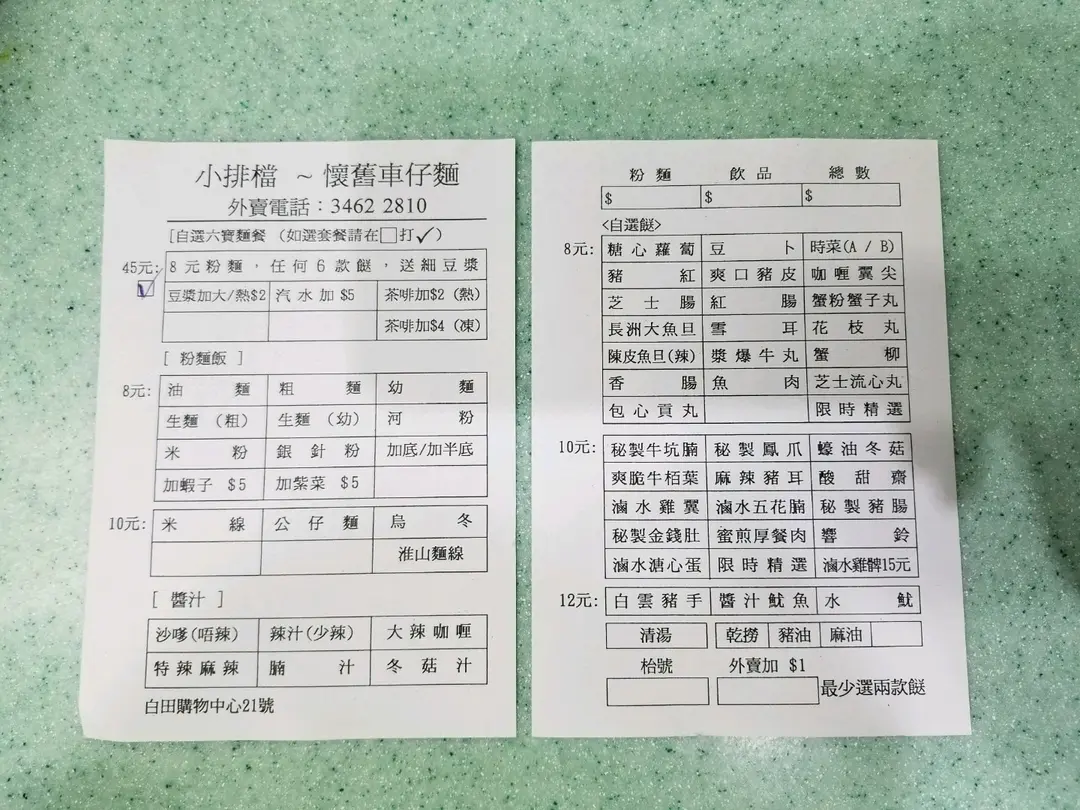 小排檔 ~ 懷舊車仔麵
外賣電話：3462 2810
[自選六寶麵餐 (如選套餐請在□打✓)
45元: 8元粉麵，任何6款餸，送細豆漿
豆漿加大/熱$2 汽水加$5 茶啡加$2 (熱)
茶啡加$4 (凍)
[ 粉麵飯 ]
8元: 油麵 粗麵 幼麵
生麵 (粗) 生麵 (幼) 河粉
米粉 銀針粉 加底/加半底
加蝦子 $5 加紫菜 $5
10元: 米線 公仔麵 烏冬
淮山麵線
[ 醬汁 ]
沙嗲(唔辣) 辣汁(少辣) 大辣咖喱
特辣麻辣 腩汁 冬菇汁
白田購物中心21號
粉麵 飲品 總數
$ $ $
<自選餸>
8元: 糖心蘿蔔 豆卜 時菜(A / B)
豬紅 爽口豬皮 咖喱翼尖
芝士腸 紅腸 蟹粉蟹子丸
長洲大魚旦 雪耳 花枝丸
陳皮魚旦(辣) 漿爆牛丸 蟹柳
香腸 魚肉 芝士流心丸
包心貢丸 限時精選
10元: 秘製牛坑腩 秘製鳳爪 蠔油冬菇
爽脆牛栢葉 麻辣豬耳 酸甜齋
滷水雞翼 滷水五花腩 秘製豬腸
秘製金錢肚 蜜煎厚餐肉 響鈴
滷水溏心蛋 限時精選 滷水雞髀15元
12元: 白雲豬手 醬汁魷魚 水魷
清湯 乾撈 豬油 麻油
枱號 外賣加 $1
最少選兩款餸